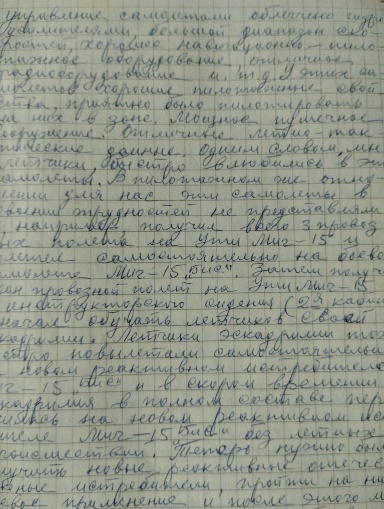 управление самолетами облегчено гидро
усилителями, большой диапазон ско-
ростей, хорошее навигационно-пило-
тажное оборудование, отличное
радиооборудование и т.д. У этих са
молетов хорошие пилотажные свой
ства, приятно было пилотировать
на них в зоне. Мощное пушечное
вооружение. Отличные летно-так
тические данные. Одним словом, мы
летчики, быстро влюбились в эти
самолеты. В пилотажном же отно
шении для нас эти самолеты в
своении трудностей не представляли
например, получил всего 3 провоз
ых полета на Ути Миг-15 и
летел самостоятельно на боево
самолете Миг-15 "Бис". Затем получ
ин провозной полет на Ути Миг-15
инструкторского сидения (2я кабин
начал обучать летчиков своей
кадрильи. Летчики эскадрильи тоже
быстро повылетали самостоятельно
новом реактивном истребителе
иг-15 "Бис" и в скором времени
кадрилья в полном составе пере
илась на новом реактивном ист
теле Миг-15 "Бис" без летных
происшествий. Теперь нужно было
изучить новые реактивные отечес
нные истребители, пройти на них
евое применение и после этого м